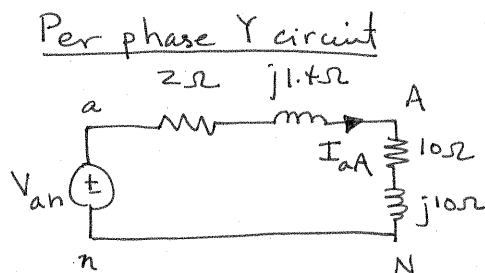 Per phase Y circuit
2Ω j1.4Ω
a A
I_aA 10Ω
V_an ±
j10Ω
n N